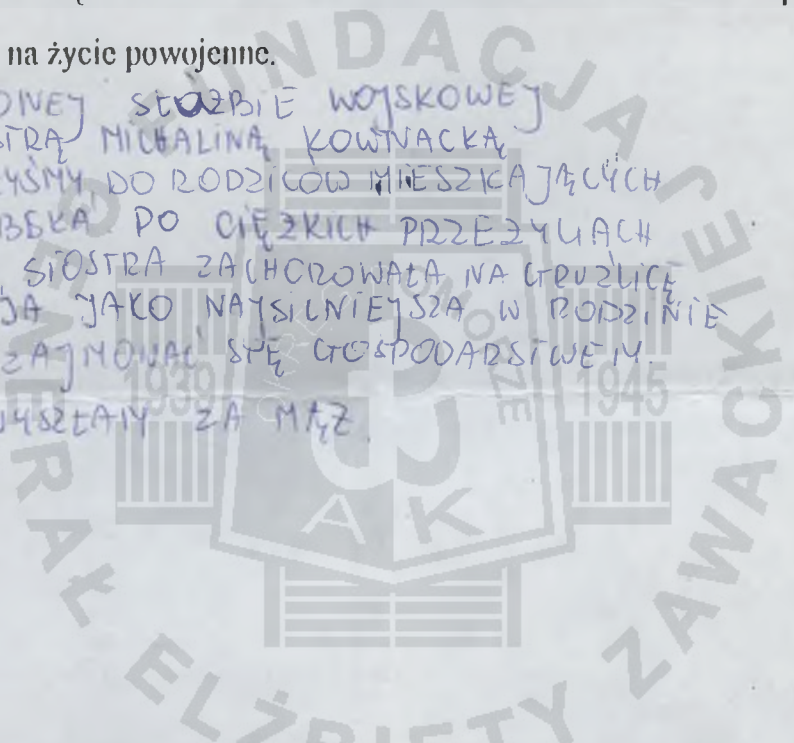 na życie powojenne.
DNEJ SŁUŻBIE WOJSKOWEJ
STRĄ MICHALINĄ KOWNACKĄ
YŚMY DO RODZICÓW MIESZKAJĄCYCH
BSKA PO CIĘŻKICH PRZEŻYCIACH
SIOSTRA ZACHOROWAŁA NA GRUŹLICĘ
JA JAKO NAJSILNIEJSZA W RODZINIE
ZAJMOWAĆ SIĘ GOSPODARSTWEM.
WYSZŁAM ZA MĄŻ.
FUNDACJA GENERAŁ ELŻBIETY ZAWACKIEJ
POMORZE
1939
1945
AK